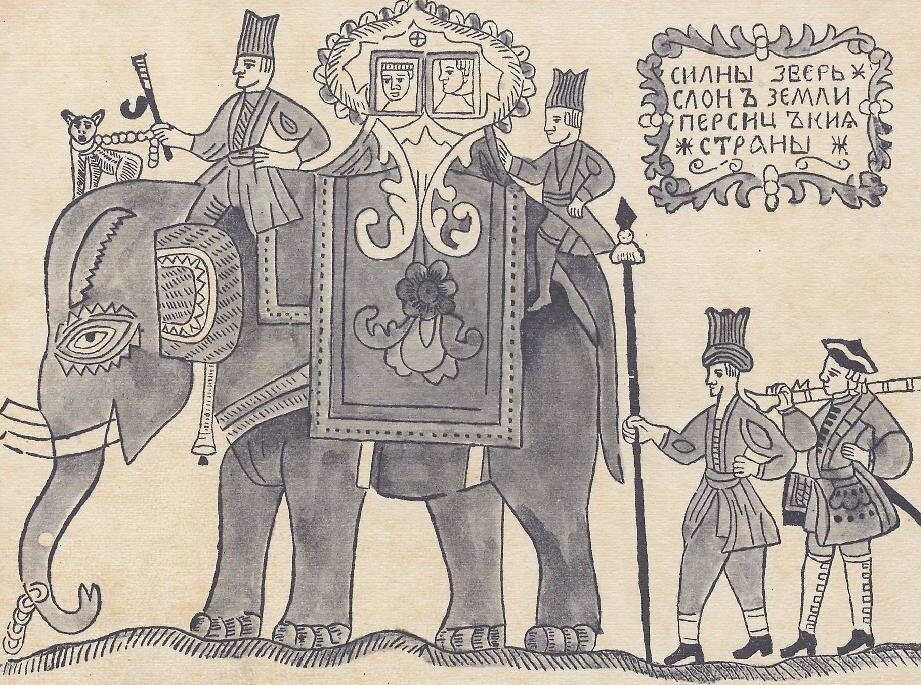 СИЛНЫ ЗВЕРЬ
СЛОНЪ ЗЕМЛИ
ПЕРСИЦЪКИѦ
СТРАНЫ